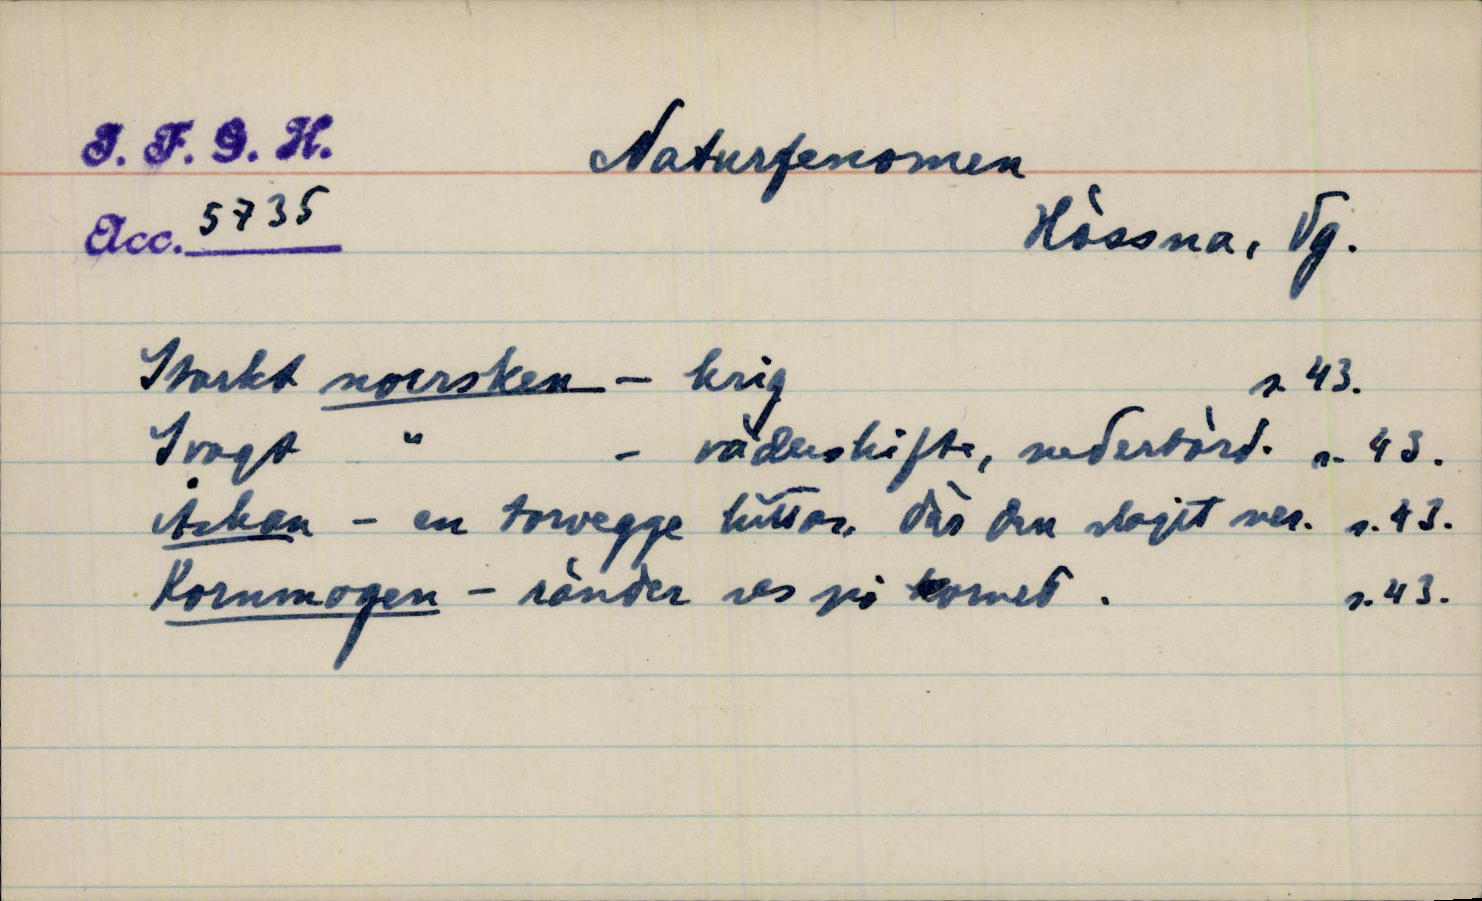 I. F. G. H.
Naturfenomen
Acc. 5735
Hössna, Vg.
Starkt norrsken - krig s. 43.
Svagt " - väderskifte, nederbörd. s. 43.
Åskan - en torvegge hittas, där den slagit ner. s. 43.
Kornmogen - ränder ses på kornet. s. 43.